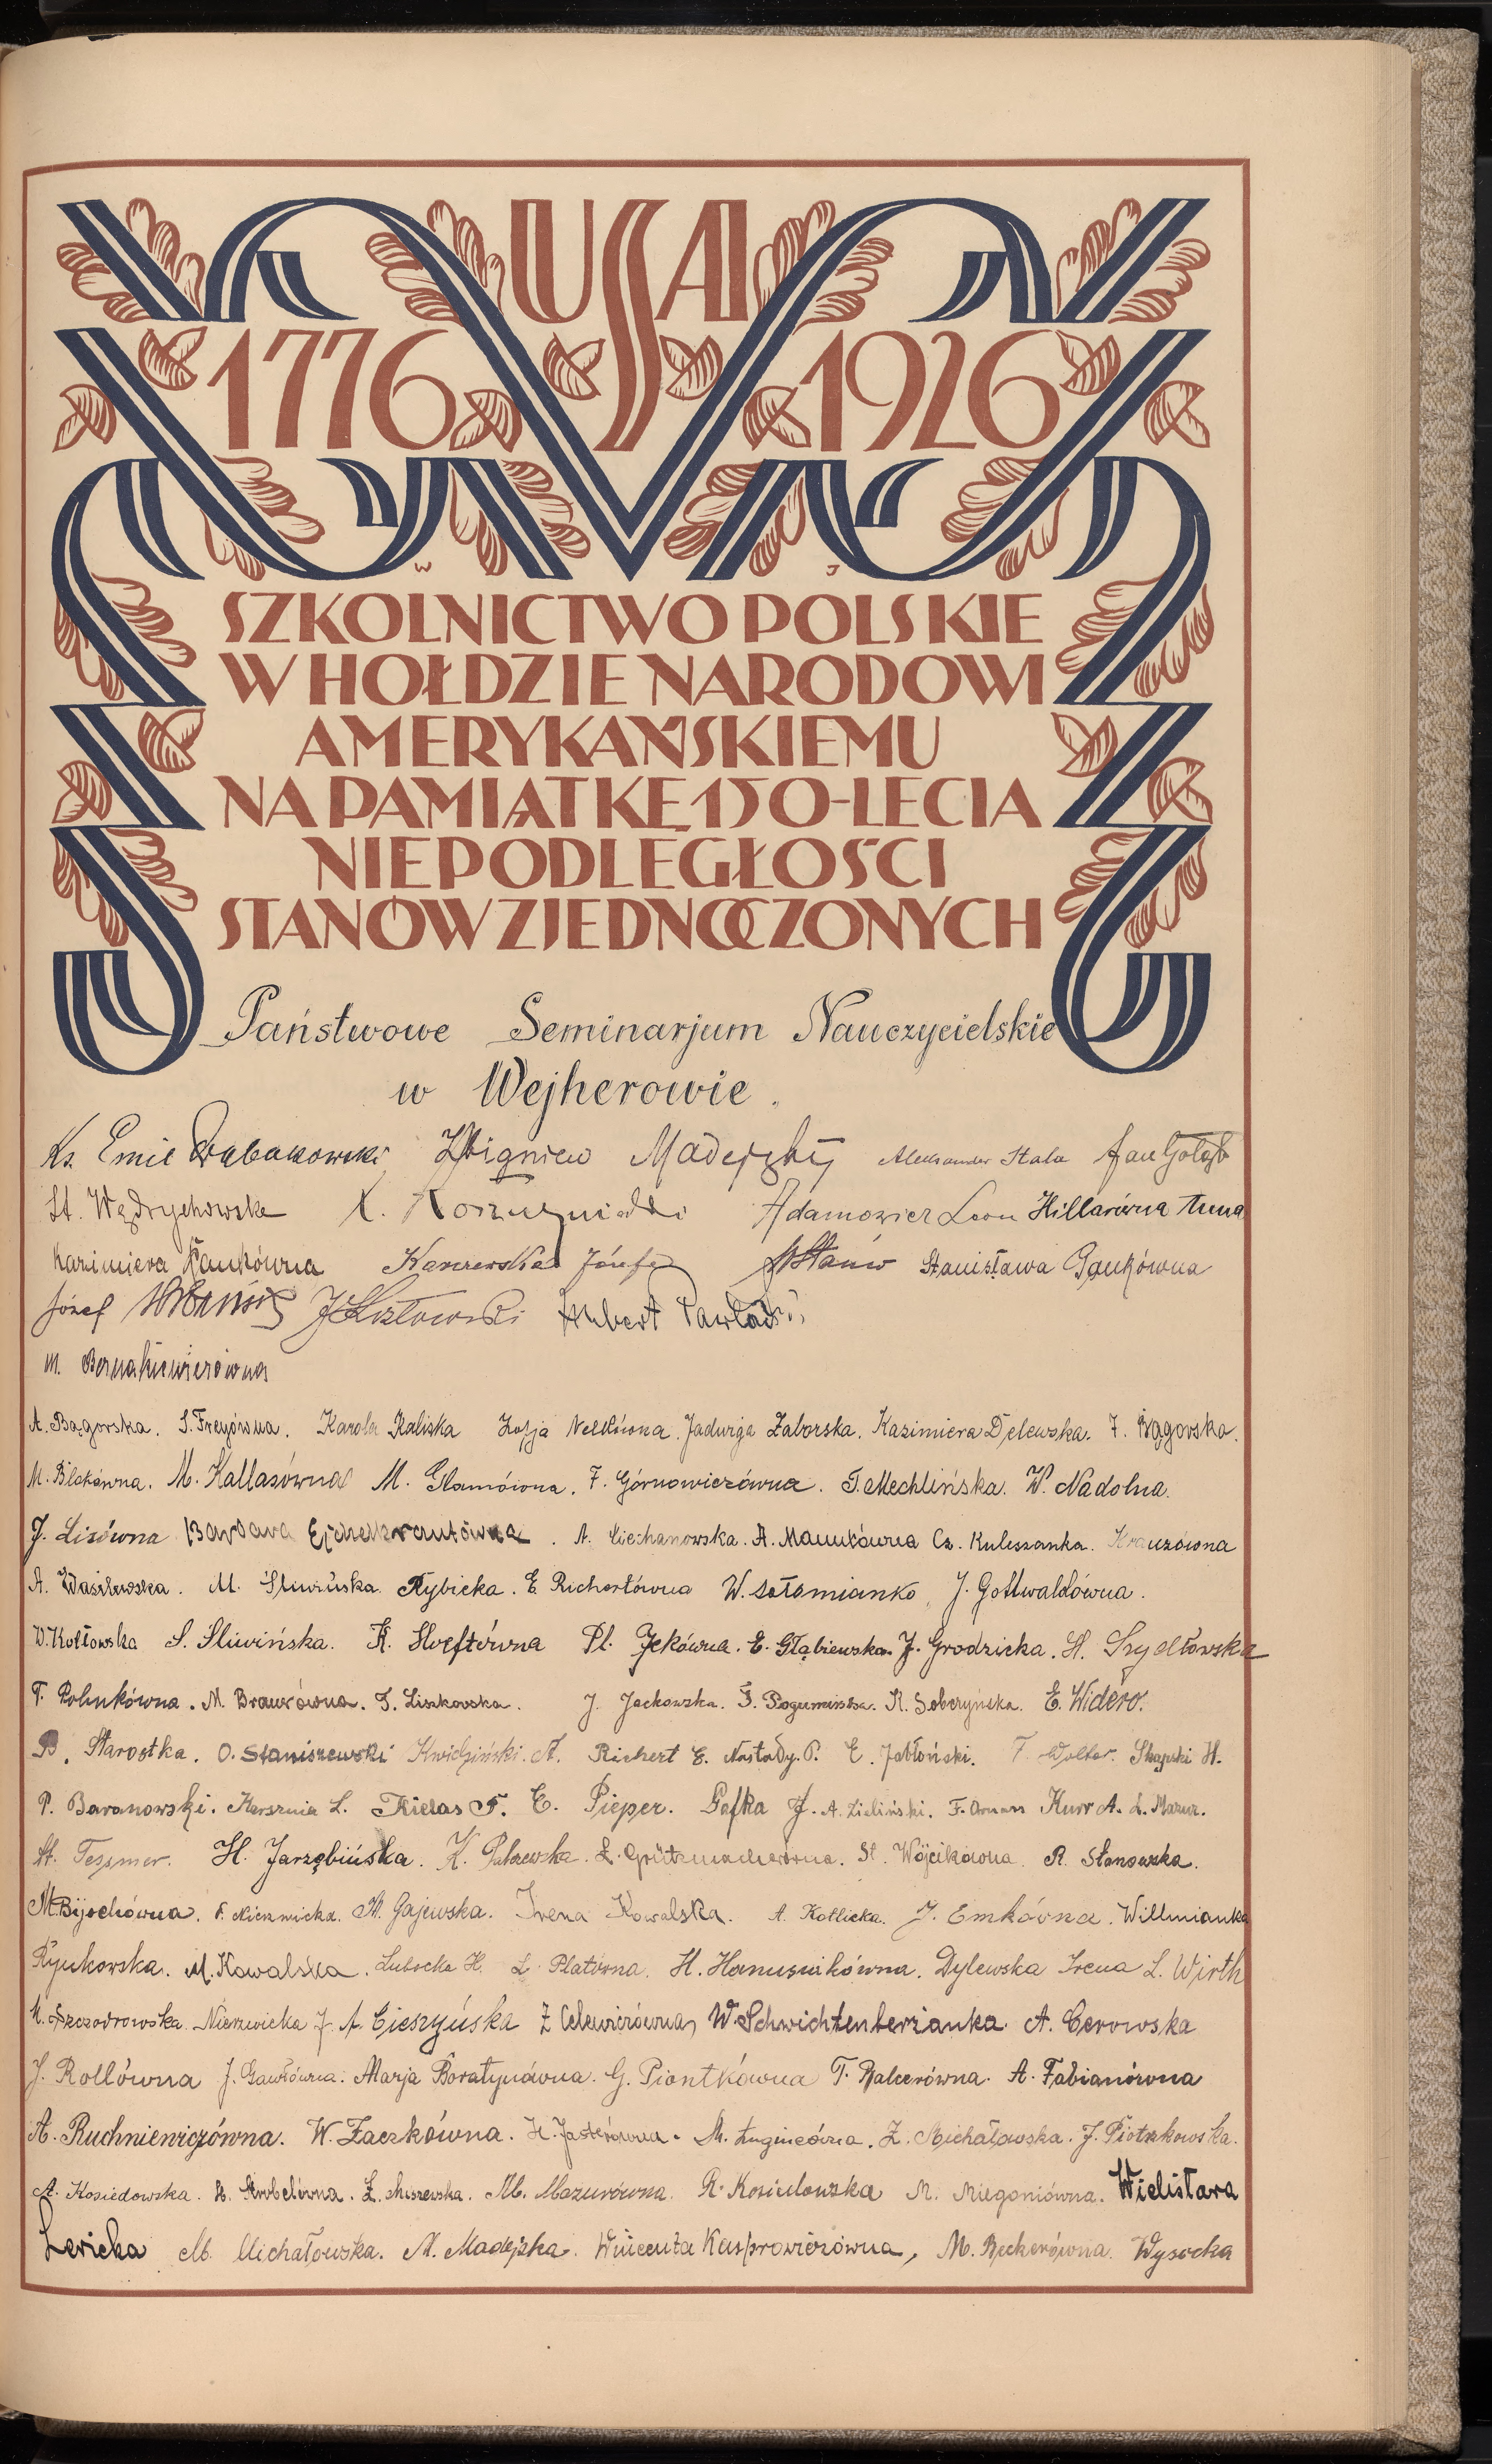 USA
1776 1926
W J
SZKOLNICTWO POLSKIE
W HOŁDZIE NARODOWI
AMERYKAŃSKIEMU
NA PAMIĄTKĘ 150-LECIA
NIEPODLEGŁOŚCI
STANÓW ZJEDNOCZONYCH
Państwowe Seminarjum Nauczycielskie
w Wejherowie.
Ks. Emil Zbigniew Madejski Aleksander Stala Jan Gołąb
St. K. Adamowicz Leon Hillarówna Anna
Kazimiera Józefa Stanisława Gankówna
Józef J Kozłowski Hubert
M.
A. Bągorska. S. Freyówna. Karola Kaliska Zofja Nelkówna. Jadwiga Zaborska. Kazimiera Delewska. F. Bągorska.
M. Blokówna. M. Kallasówna M. Glamówna. F. Górnowiczówna. T. Mechlińska. W. Nadolna.
J. Lisówna Barbara A. Ciechanowska. A. Mannkówna Cz. Kuleszanka. Krauzówna
A. Wasilewska. M. Śliwińska Rybicka. E. Richertówna W. Sołomianko, J. Gottwaldówna.
W. Kołtowska S. Śliwińska. K. Hoeftówna Pl. Jekówna. E. Głąbiewska. J. Grodzicka. H. Szydłowska
T. Polnkówna. M. Braunówna. T. Liskowska. J. Jackowska. R. Soberyńska. E. Widero.
B. Starostka. O. Staniszewski Kwidziński. A. Richert E. Nastady. P. E. Jabłoński. F. Wolter. Skapski H.
P. Baranowski. Karsznia L. Kielas F. E. Pieper. Gafka J. A. Zieliński. F. Kurr A. L. Mazur.
St. Tessmer. H. Jarzębińska. K. L. Grützmacherówna. St. Wójcikówna. R. Stanowska.
M. Bijochówna. F. Nierzwicka. M. Gajewska. Irena Kowalska. A. Kotlicka. J. Emkówna. Willmianka
Rynkowska. M. Kowalska. Lubocka H. L. Platówna. H. Hanusiakówna. Dylewska Irena L. Wirth
M. Szczodrowska. Nierzwicka J. A. Cieszyńska Z Celewiczówna, W. Schwichtenberżanka. A. Cerowska
J. Rollówna J. Gawłówna. Marja Boratynówna. G. Piontkówna T. Balcerówna. A. Fabianówna
A. Ruchniewiczówna. W. Żaczkówna. H. Jasterówna. M. Ługincówna. Z. Michałowska. J. Piotrkowska.
A. Kosiedowska. H. Strobelówna. Z. Miszewska. M. Mazurówna. R. Kosiedowska M. Miegoniówna. Wielisława
Lericka M. Michałowska. M. Madejska. Wincenta Kasprowiczówna, M. Beckerówna. Wysocka